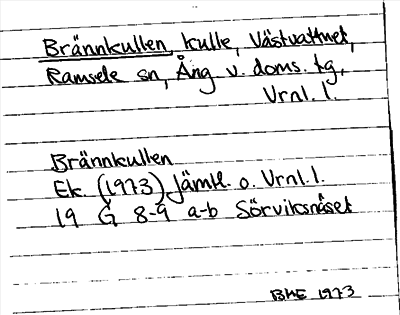 Brännkullen, kulle, Västvattnet,
Ramsele sn, Ång v. doms. tg,
Vrnl. l.
Brännkullen
Ek. (1973) Jämtl. o. Vrnl. l.
19 G 8-9 a-b Sörviksnäset
BHE 1973